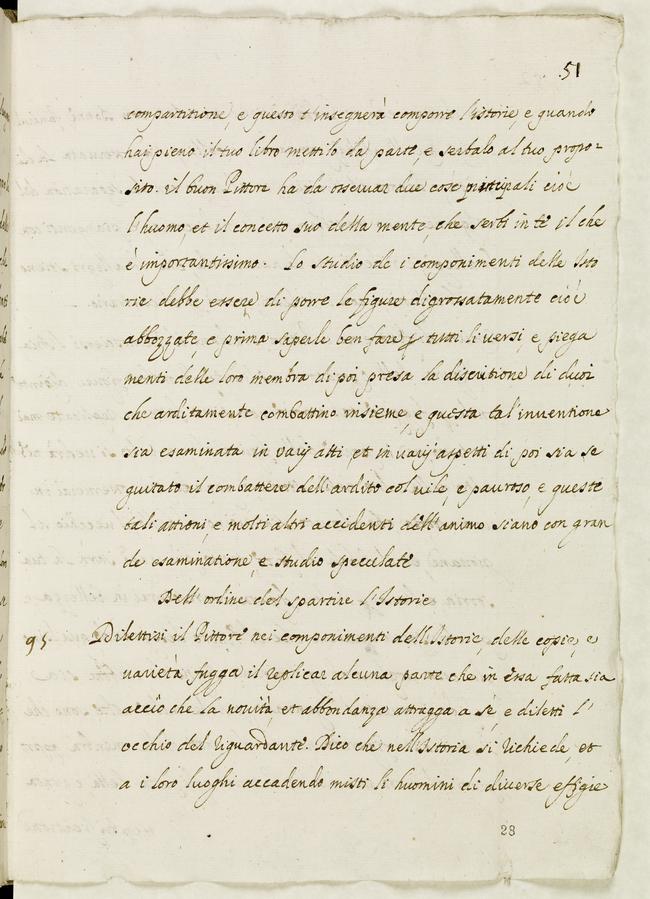 51
compartitione, e questo t'insegnerà comporre l'istorie, e quando
hai pieno il tuo libro mettilo da parte, e serbalo al tuo propo-
sito. il buon Pittore ha da osservar due cose principali cioè
l'huomo, et il concetto suo della mente, che serbi in te il che
è importantissimo. Lo studio de i componimenti delle Isto
rie debbe essere di porre le figure digrossatamente cioè
abbozzate, e prima saperle ben fare p tutti li versi, e piega
menti delle loro membra di poi presa la discritione di duoi
che arditamente combattino insieme, e questa tal'inventione
sia esaminata in varij atti, et in varij aspetti di poi sia se
guitato il combattere dell'ardito col vile, e pauroso, e queste
tali attioni, e molti altri accidenti dell'animo siano con gran
de esaminatione, e studio speculate
Dell'ordine del spartire l'Istorie
95. Dilettisi il Pittore nei componimenti dell'Istorie, delle copie, e
varietà fugga il replicar alcuna parte che in essa fatta sia
acciò che la novità, et abbondanza attragga a sé, e diletti l'
occhio del riguardante. Dico che nell'Istoria si richiede, et
a i loro luoghi accadendo misti li huomini di diverse effigie
28